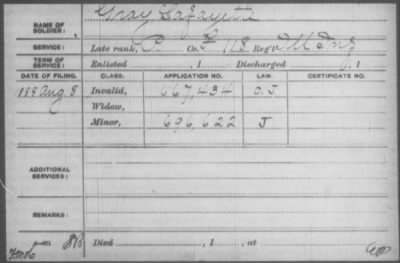 Gray Lafayette
NAME OF SOLDIER:
SERVICE: Late rank, P. Co. F, 118 Reg't Ill Inf
TERM OF SERVICE: Enlisted , 1 Discharged , 1
DATE OF FILING. CLASS. APPLICATION NO. LAW. CERTIFICATE NO.
1888 Aug 8 Invalid, 667,434 O.J
Widow,
Minor, 696,622 J
ADDITIONAL SERVICES:
REMARKS:
Died , 1 , at